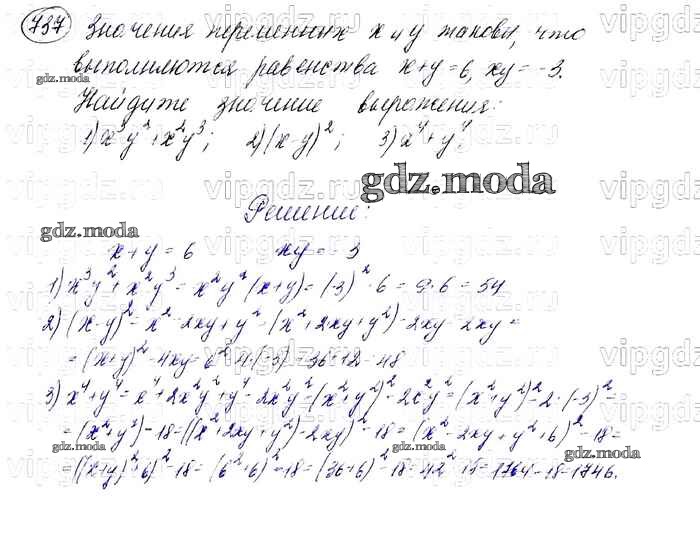 737 Значения переменных x и y таковы, что
выполняются равенства x+y=6, xy=-3.
Найдите значение выражения:
1) x³y²+x²y³; 2) (x-y)²; 3) x⁴+y⁴.
gdz.moda
Решение:
x+y=6 xy=-3
1) x³y²+x²y³=x²y²(x+y)=(-3)²·6=9·6=54
2) (x-y)²=x²-2xy+y²=(x²+2xy+y²)-2xy-2xy=
=(x+y)²-4xy=6²-4·(-3)=36+12=48
3) x⁴+y⁴=x⁴+2x²y²+y⁴-2x²y²=(x²+y²)²-2x²y²=(x²+y²)²-2·(-3)²=
=(x²+y²)²-18=((x²+2xy+y²)-2xy)²-18=(x²+2xy+y²+6)²-18=
=((x+y)²+6)²-18=(6²+6)²-18=(36+6)²-18=42²-18=1764-18=1746.